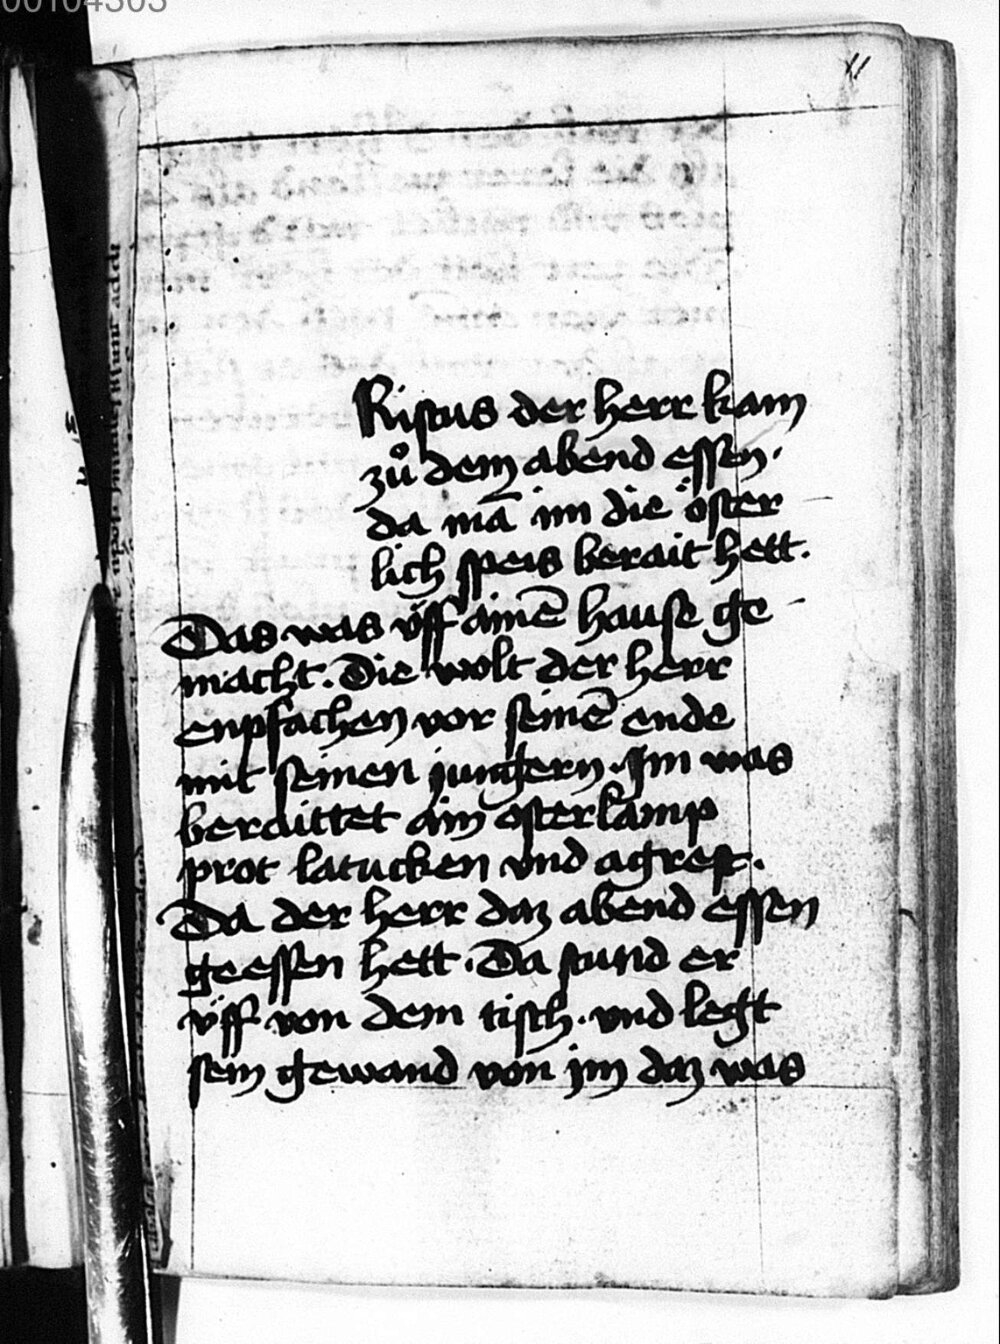 Ristus der herr kam
zů dem abend essen.
da mā im die öster
lich speis berait hett.
Das was vff ainē hause ge
macht. Die wolt der herr
enpfachen vor seinē ende
mit seinen jungern. Im was
beraittet ain osterlamp
prot latucken vnd agrest.
Da der herr daz abend essen
geessen hett. Da stund er
vff von dem tisch. vnd legt
sein gewand von jm daz was